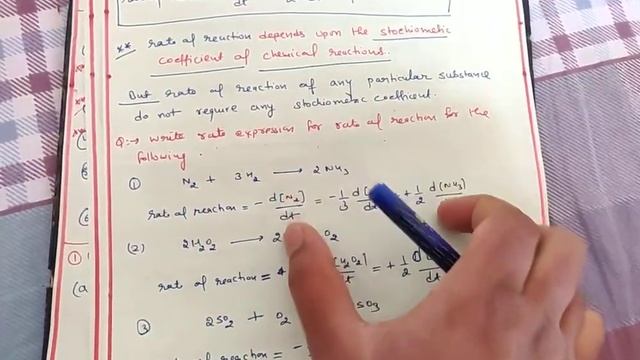 dt
** rate of reaction depends upon the stochiometric
coefficient of chemical reactions.
But rate of reaction of any particular substance
do not requre any stochiometric coefficient.
Q:→ Write rate expression for rate of reaction for the
following.
① N₂ + 3H₂ → 2NH₃
rate of reaction = - d[N₂]/dt = - 1/3 d[ + 1/2 d(NH₃)
(2) 2H₂O₂ → 2 O₂
rate of reaction = [H₂O₂] = + 1/2 d
③ 2SO₂ + O₂ SO₃
of reaction = -
①
(a